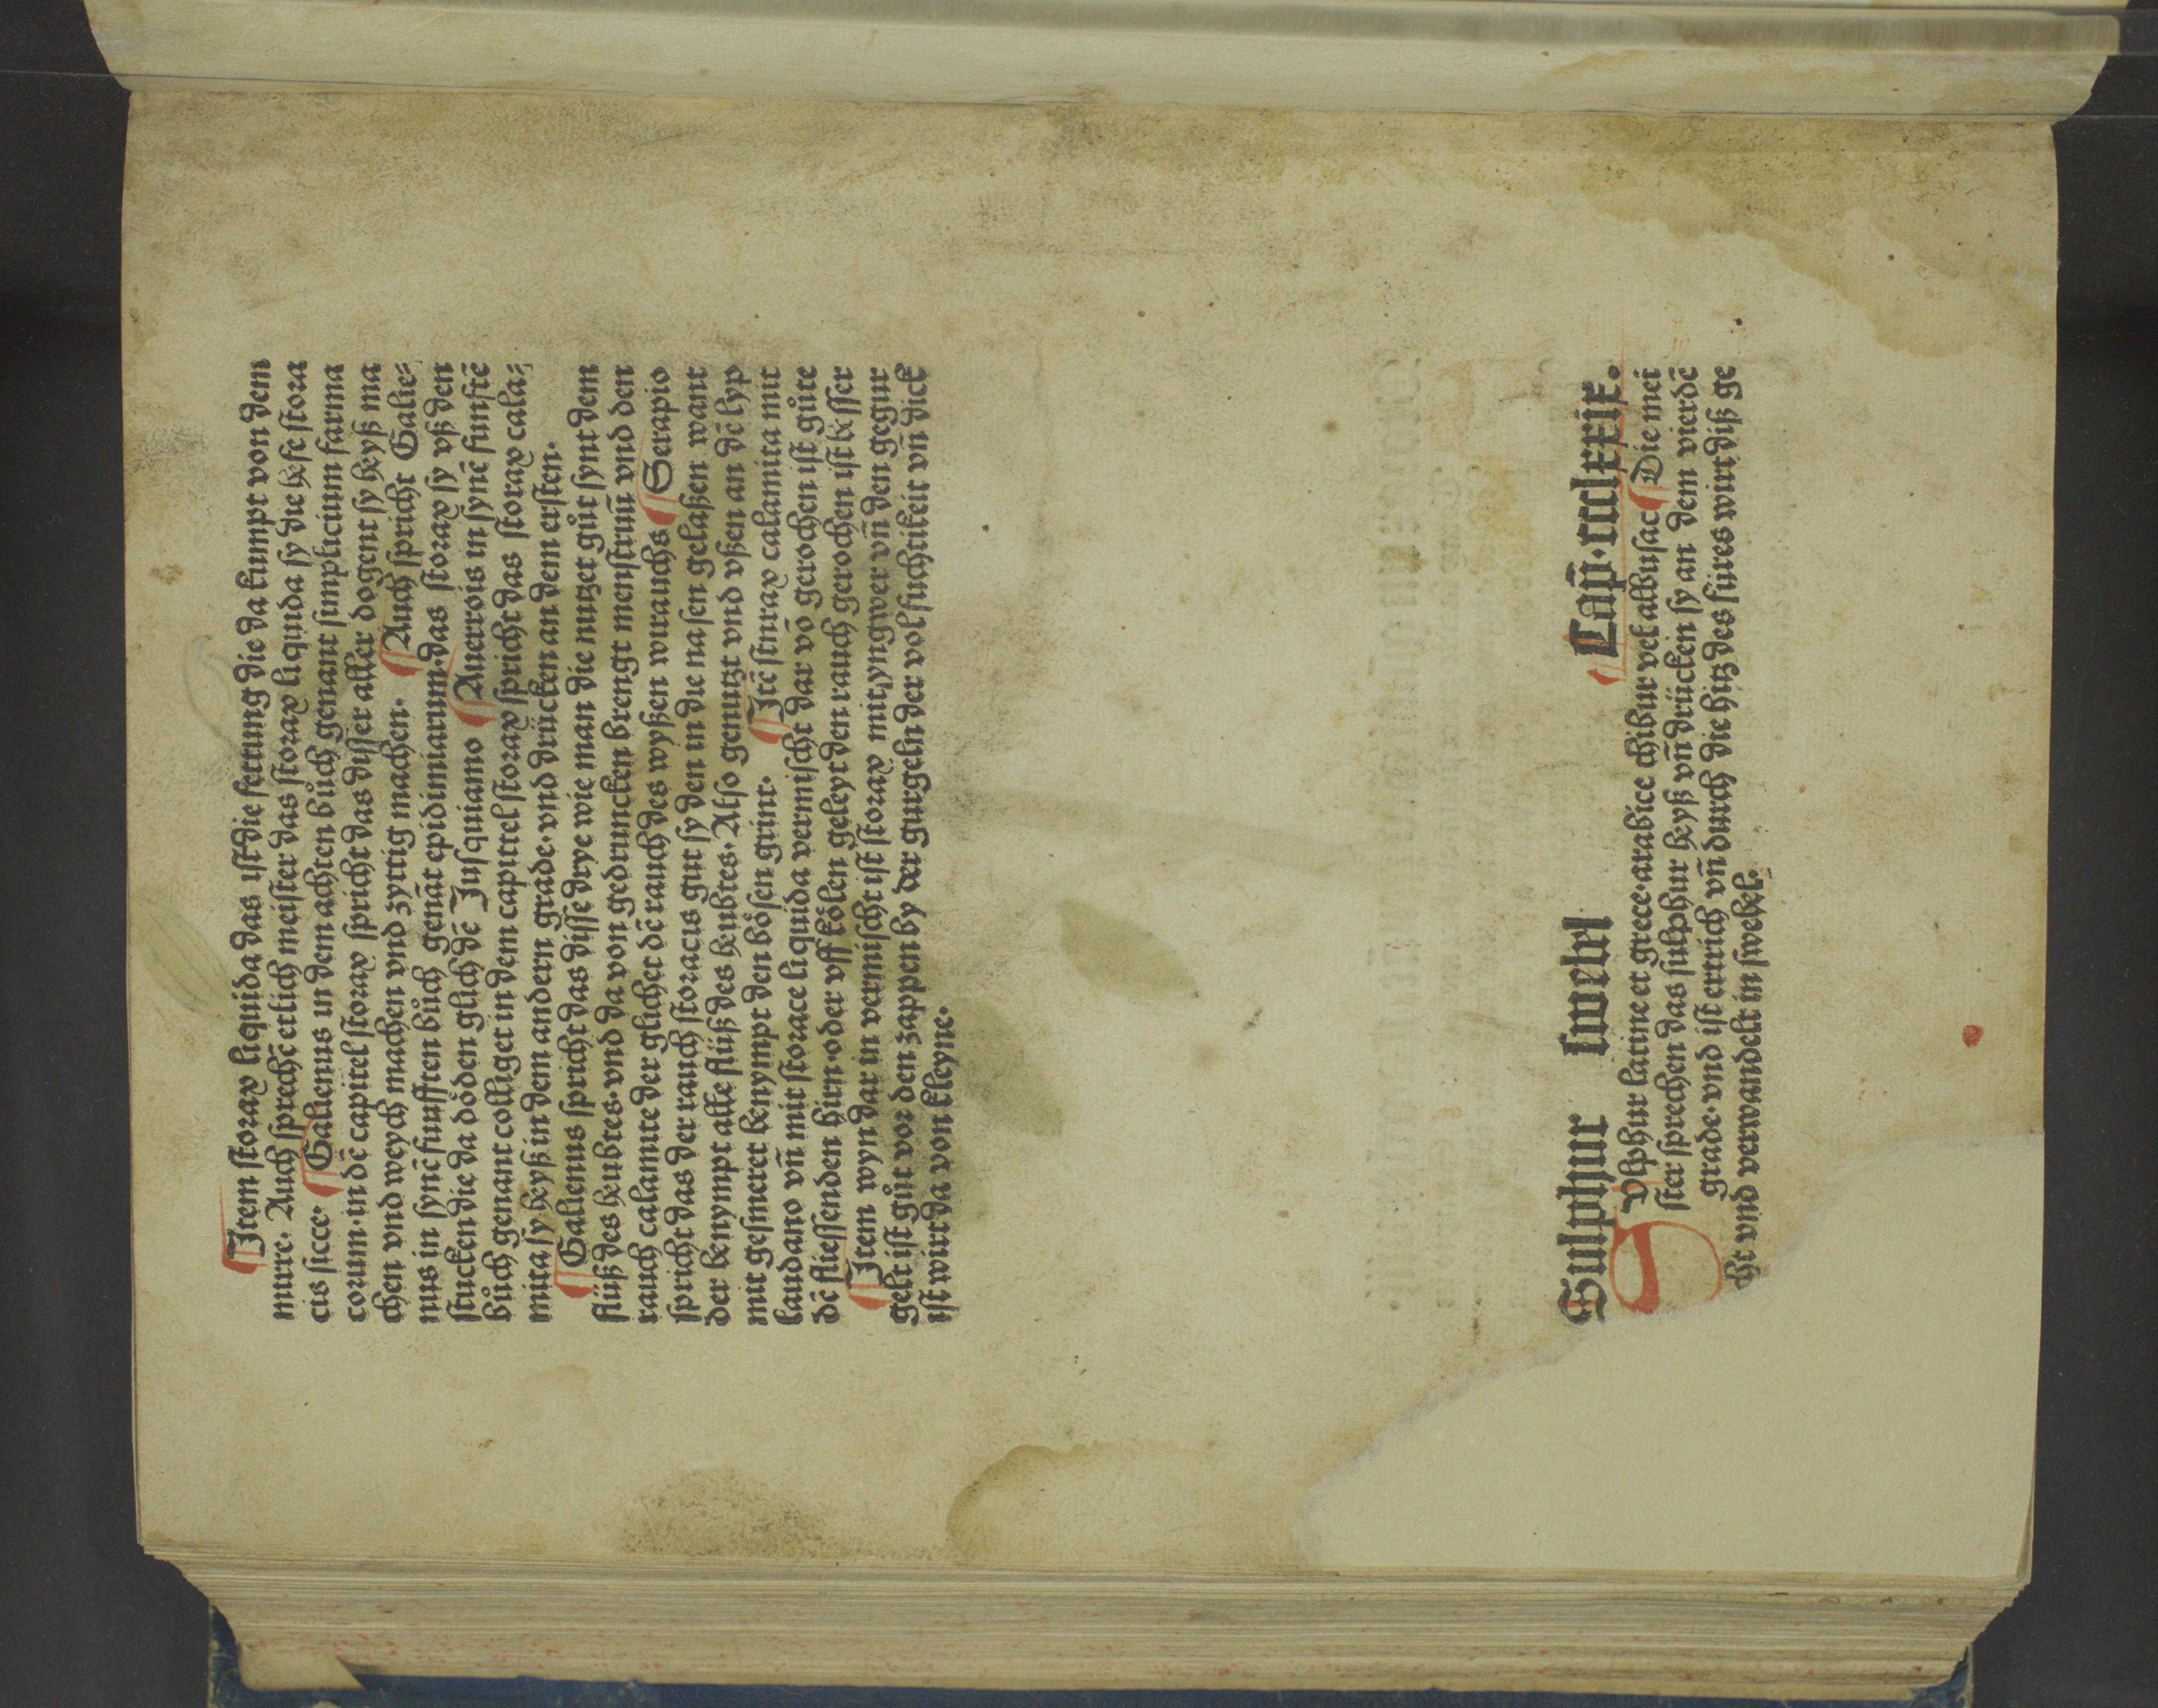 Item storax liquida das ist die fettung die da kumpt von dem
mirre. Auch sprechē etlich meister das storax liquida sy die hefe stora
cis sicce. Galienus in dem achten bůch genant simplicium farma
corum·in dē capitel storax spricht das disser aller dogent sy heyß ma
chen vnd weych machen vnd zyttig machen. Auch spricht Galie⸗
nus in synē funfften bůch genāt epidimiarum·das storax sy vß den
stucken die da döden glich dē Jusquiamo Auerrois in synē funftē
bůch genant colliget in dem capittel storax spricht das storax cala⸗
mita sy heyß in dem andern grade·vnd drücken an dem ersten.
Galienus spricht das disse drye wie man die nutzet gůt synt dem
flüß des heubtes·vnd da von gedruncken brengt menstruū vnd den
rauch calamite der glichet dē rauch des wyßen wirauchs Serapio
spricht das der rauch storacis gut sy den in die nasen gelaßen want
der benympt alle flüß des heubtes. Also genutzt vnd vßen an dē lyp
mit gesmeret benympt den bösen grint. Itē stnrax calamita mit
laudano vn̄ mit storace liquida vermischt dar vō gerochen ist gůte
dē fliessenden hirn·oder vff kölen geleyt den rauch gerochen ist besser
Item wyn dar in vermischt ist storax mit yngwer vn̄ den gegur
gelt ist gůt vor den zappen by der gurgeln der vol fuchtikeit vn̄ dick
ist wirt da von kleyne.
Sulphur swebel Cap̄·ccclxxxix.
SVlphur latine et grece·arabice chibur vel albusac Die mei
ster sprechen das sulphur heyß vn̄ drücken sy an dem vierdē
grade·vnd ist ertrich vn̄ durch die hitz des fůres wirt diß ge
cht vnd verwandelt in swebel.